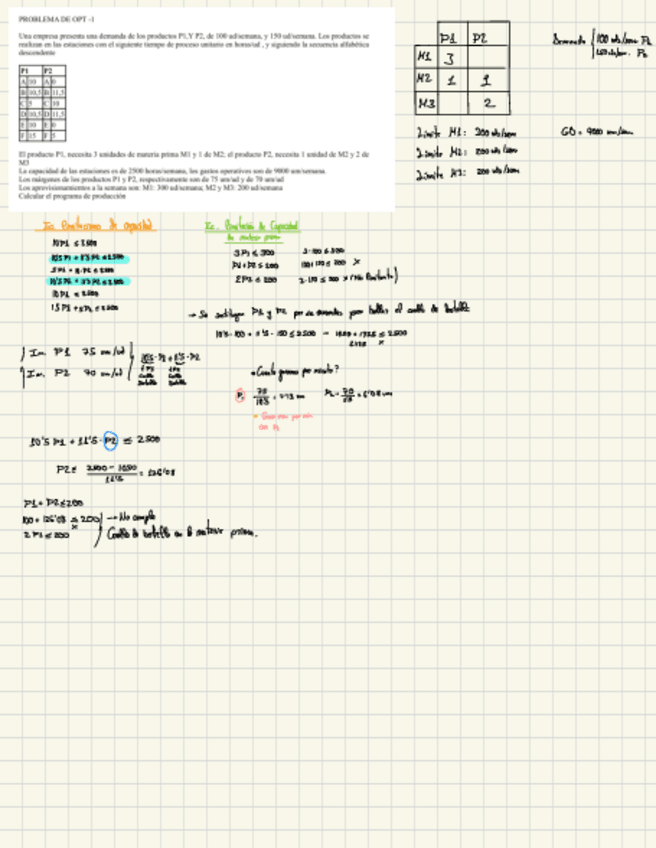 PROBLEMA DE OPT -1
Una empresa presenta una demanda de los productos P1,Y P2, de 100 ud/semana, y 150 ud/semana. Los productos se
realizan en las estaciones con el siguiente tiempo de proceso unitario en horas/ud , y siguiendo la secuencia alfabética
descendente
P1 P2
A 10 A 0
B 10,5 B 11,5
C 5 C 10
D 10,5 D 11,5
E 10 E 0
F 15 F 5
El producto P1, necesita 3 unidades de materia prima M1 y 1 de M2; el producto P2, necesita 1 unidad de M2 y 2 de
M3
La capacidad de las estaciones es de 2500 horas/semana, los gastos operativos son de 9000 um/semana.
Los márgenes de los productos P1 y P2, respectivamente son de 75 um/ud y de 70 um/ud
Los aprovisionamientos a la semana son: M1: 300 ud/semana; M2 y M3: 200 ud/semana
Calcular el programa de producción
P1 P2
M1 3
M2 1 1
M3 2
Demanda 100 uds/sem P1
150 uds/sem P2
Límite M1: 300 uds/sem
GO = 9000 um/sem
Límite M2: 200 uds/sem
Límite M3: 200 uds/sem
10P1 ≤ 2.500
10'5 P1 + 11'5 P2 ≤ 2.500
10'5 P1 + 11'5 P2 ≤ 2.500
10 P1 ≤ 2.500
15 P1 + 5 P2 ≤ 2.500
materia prima
3P1 ≤ 300
3·100 ≤ 300
P1 + P2 ≤ 200
100+150 ≤ 200 x
→ Se sustituyen P1 y P2 por su demanda para hallar el cuello de botella
10'5·100 + 11'5·150 ≤ 2.500
P1 75 um/ud
P2 70 um/ud
¿Cuánto ganamos por minuto?
10'5 P1 + 11'5·P2 ≤ 2500
P2 ≤ 2500 - 1050 / 11'5 = 126'08
P1 + P2 ≤ 200
100 + 126'08 ≤ 200 → No cumple
Cuello de botella en la materia prima.